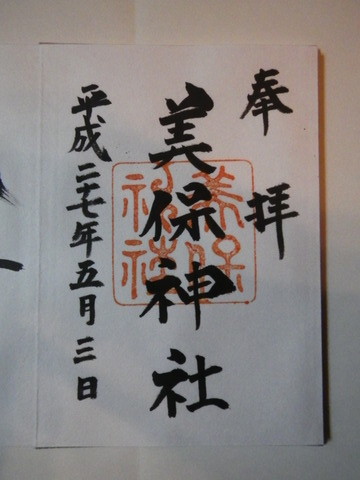 奉拝
美保神社
平成二十七年五月三日
美保神社